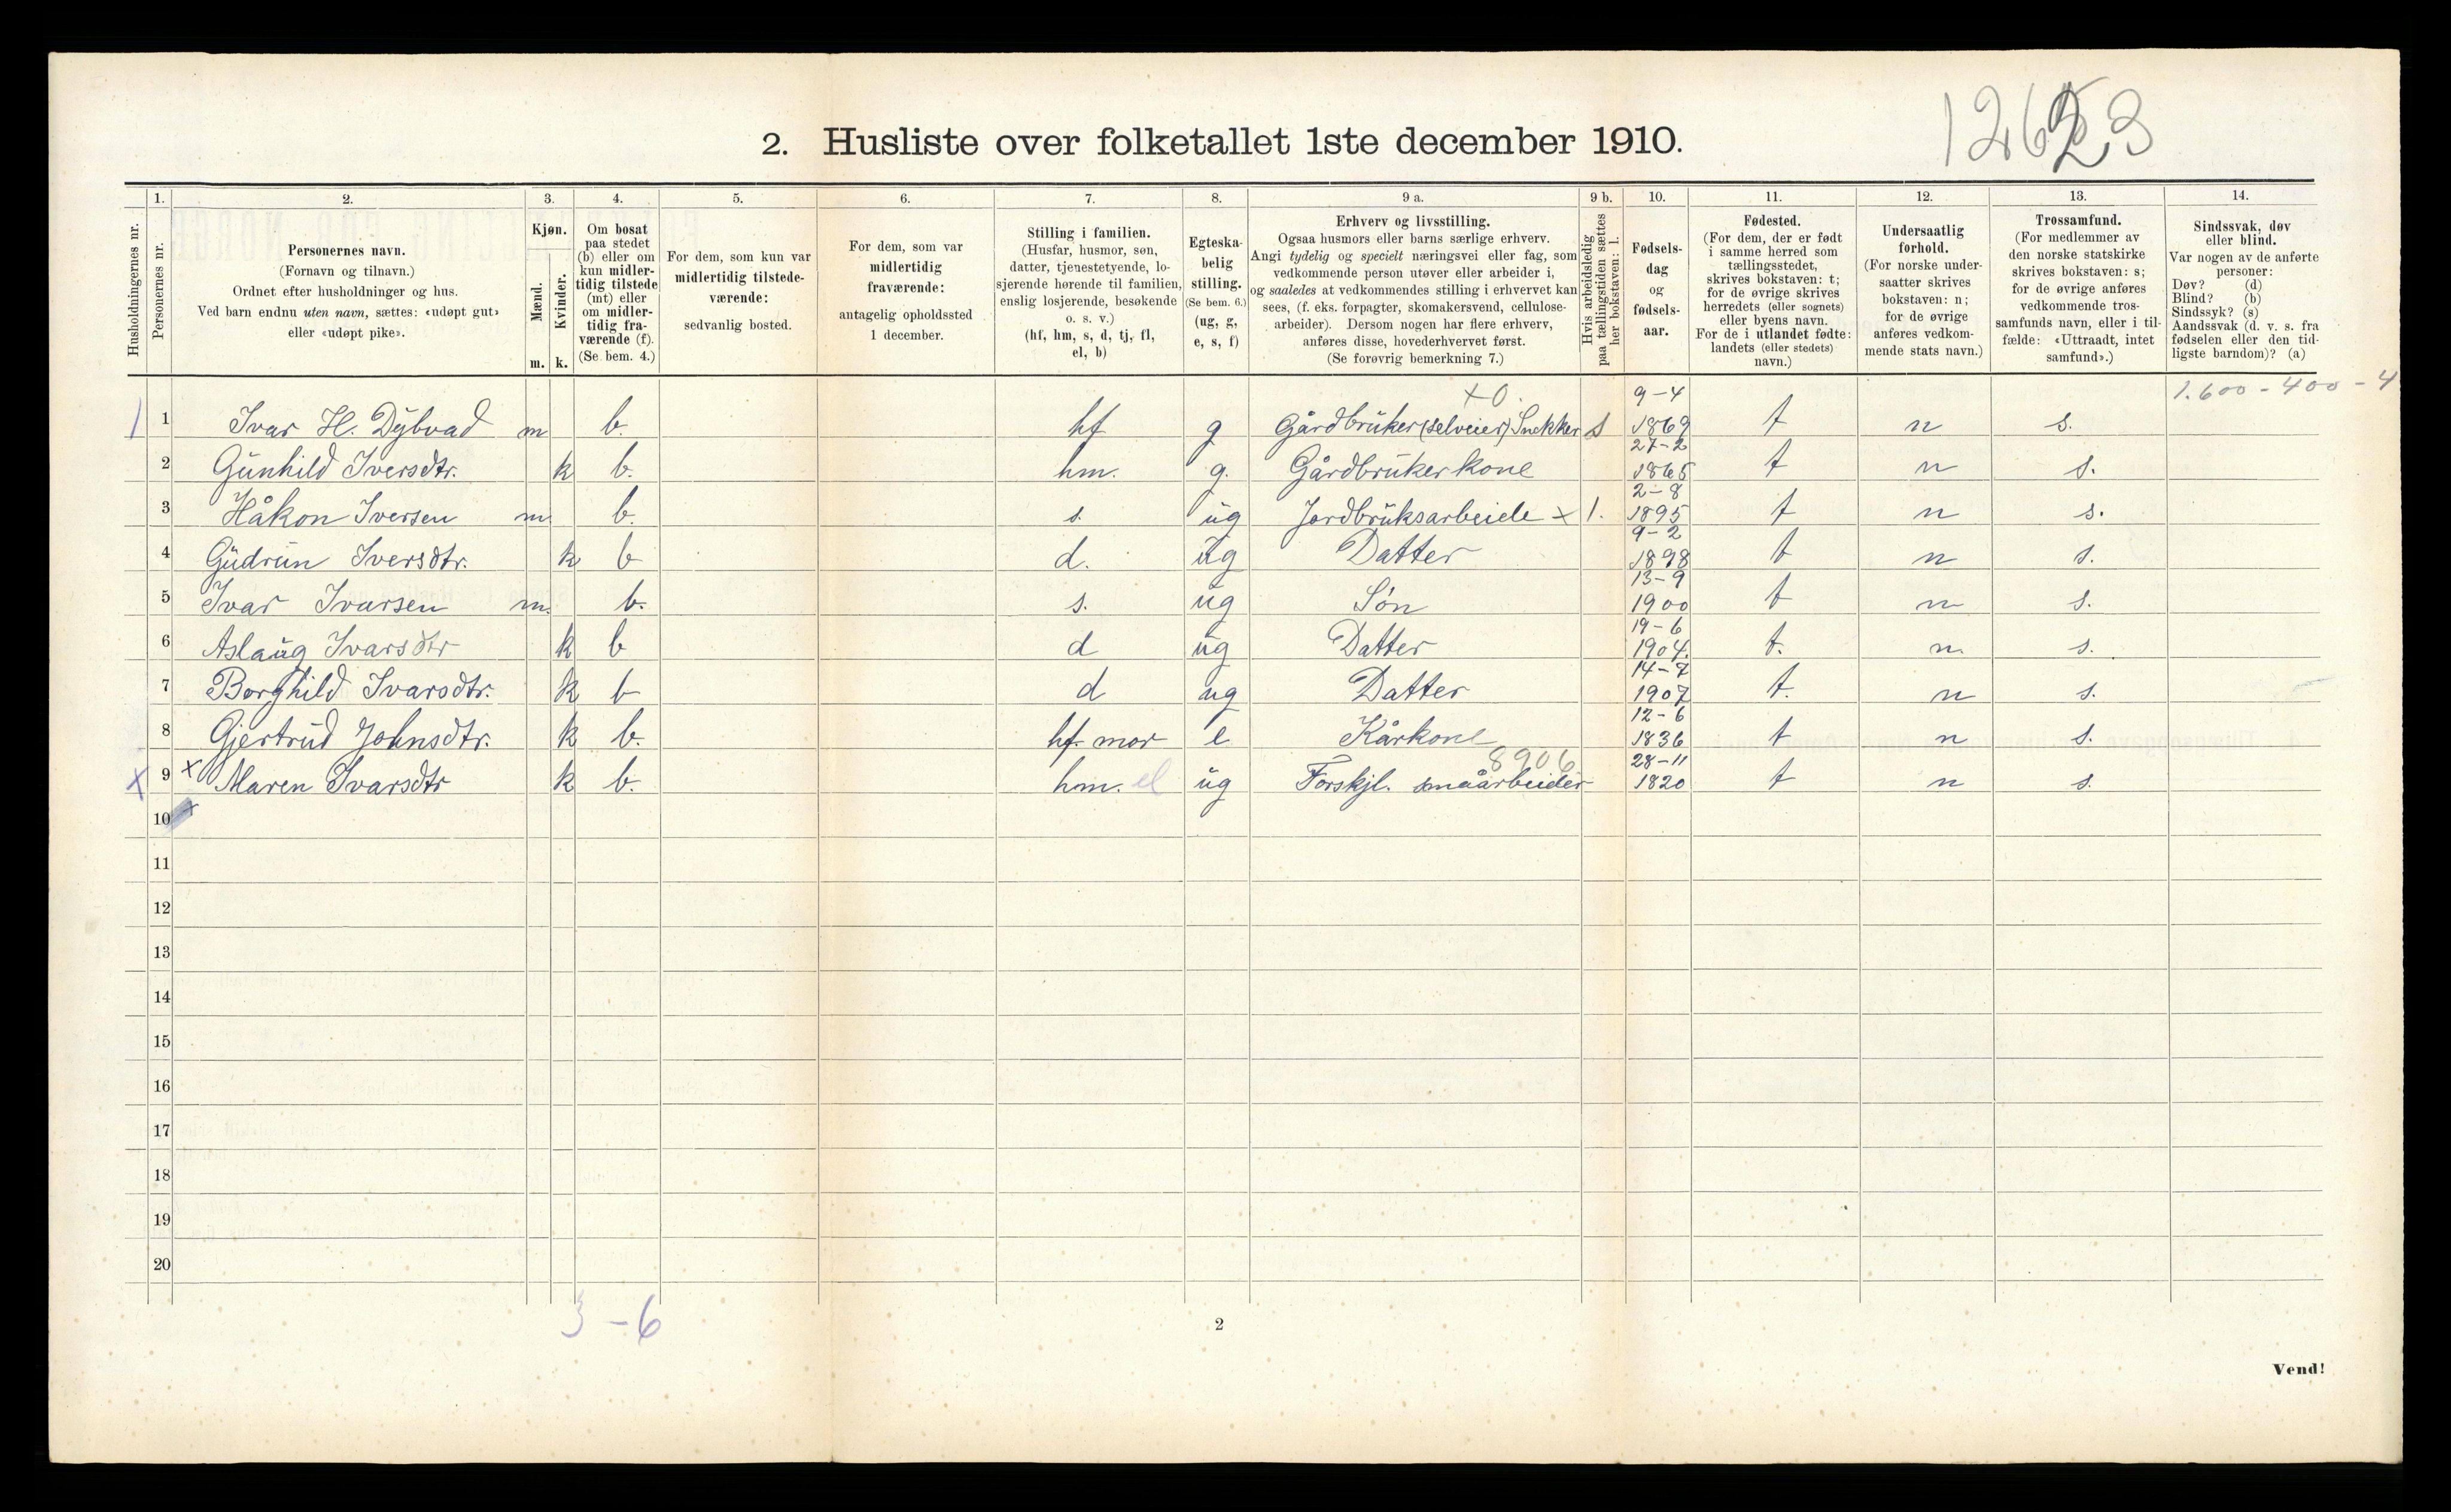 2. Husliste over folketallet 1ste december 1910.
Husholdningernes nr.
1. Personernes nr.
2. Personernes navn.
(Fornavn og tilnavn.)
Ordnet efter husholdninger og hus.
Ved barn endnu uten navn, sættes: «udøpt gut»
eller «udøpt pike».
3. Kjøn.
Mænd. m.
Kvinder. k.
4. Om bosat
paa stedet
(b) eller om
kun midler-
tidig tilstede
(mt) eller
om midler-
tidig fra-
værende (f).
(Se bem. 4.)
5. For dem, som kun var
midlertidig tilstede-
værende:
sedvanlig bosted.
6. For dem, som var
midlertidig
fraværende:
antagelig opholdssted
1 december.
7. Stilling i familien.
(Husfar, husmor, søn,
datter, tjenestetyende, lo-
sjerende hørende til familien,
enslig losjerende, besøkende
o. s. v.)
(hf, hm, s, d, tj, fl,
el, b)
8. Egteska-
belig
stilling.
(Se bem. 6.)
(ug, g,
e, s, f)
9 a. Erhverv og livsstilling.
Ogsaa husmors eller barns særlige erhverv.
Angi tydelig og specielt næringsvei eller fag, som
vedkommende person utøver eller arbeider i,
og saaledes at vedkommendes stilling i erhvervet kan
sees, (f. eks. forpagter, skomakersvend, cellulose-
arbeider). Dersom nogen har flere erhverv,
anføres disse, hovederhvervet først.
(Se forøvrig bemerkning 7.)
9 b. Hvis arbeidsledig
paa tællingstiden sættes
her bokstaven: l.
10. Fødsels-
dag
og
fødsels-
aar.
11. Fødested.
(For dem, der er født
i samme herred som
tællingsstedet,
skrives bokstaven: t;
for de øvrige skrives
herredets (eller sognets)
eller byens navn.
For de i utlandet fødte:
landets (eller stedets)
navn.)
12. Undersaatlig
forhold.
(For norske under-
saatter skrives
bokstaven: n;
for de øvrige
anføres vedkom-
mende stats navn.)
13. Trossamfund.
(For medlemmer av
den norske statskirke
skrives bokstaven: s;
for de øvrige anføres
vedkommende tros-
samfunds navn, eller i til-
fælde: «Uttraadt, intet
samfund».)
14. Sindssvak, døv
eller blind.
Var nogen av de anførte
personer:
Døv? (d)
Blind? (b)
Sindssyk? (s)
Aandssvak (d. v. s. fra
fødselen eller den tid-
ligste barndom)? (a)
+0. 1.600 - 400 - 4
1 1 Ivar H. Dybvad m b. hf g Gårdbruker (selveier) Snekker s 9-4 1869 t n s.
2 Gunhild Iversdtr. k b. hm. g. Gårdbrukerkone 27-2 1865 t n s.
3 Håkon Iversen m. b. s. ug Jordbruksarbeide x l. 2-8 1895 t n s.
4 Gudrun Iversdtr. k b d. ug Datter 9-2 1898 t n s.
5 Ivar Ivarsen m. b. s. ug Søn 13-9 1900 t n s.
6 Aslaug Ivarsdtr k b d ug Datter 19-6 1904. t. n. s.
7 Borghild Ivarsdtr. k b d ug Datter 14-7 1907 t. n s.
8 Gjertrud Johnsdtr. k b. hf. mor e Kårkone 12-6 1836 t n s.
8906
x 9 x Maren Ivarsdtr k b. hm. el ug Forskjl. småarbeider 28-11 1820 t n s.
10
11
12
13
14
15
16
17
18
19
20
3 - 6
2
Vend!